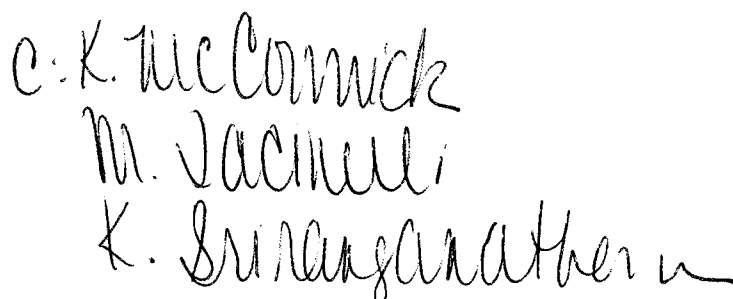 C. K. McCormick
M. Jacinelli
K. Sriranganathan